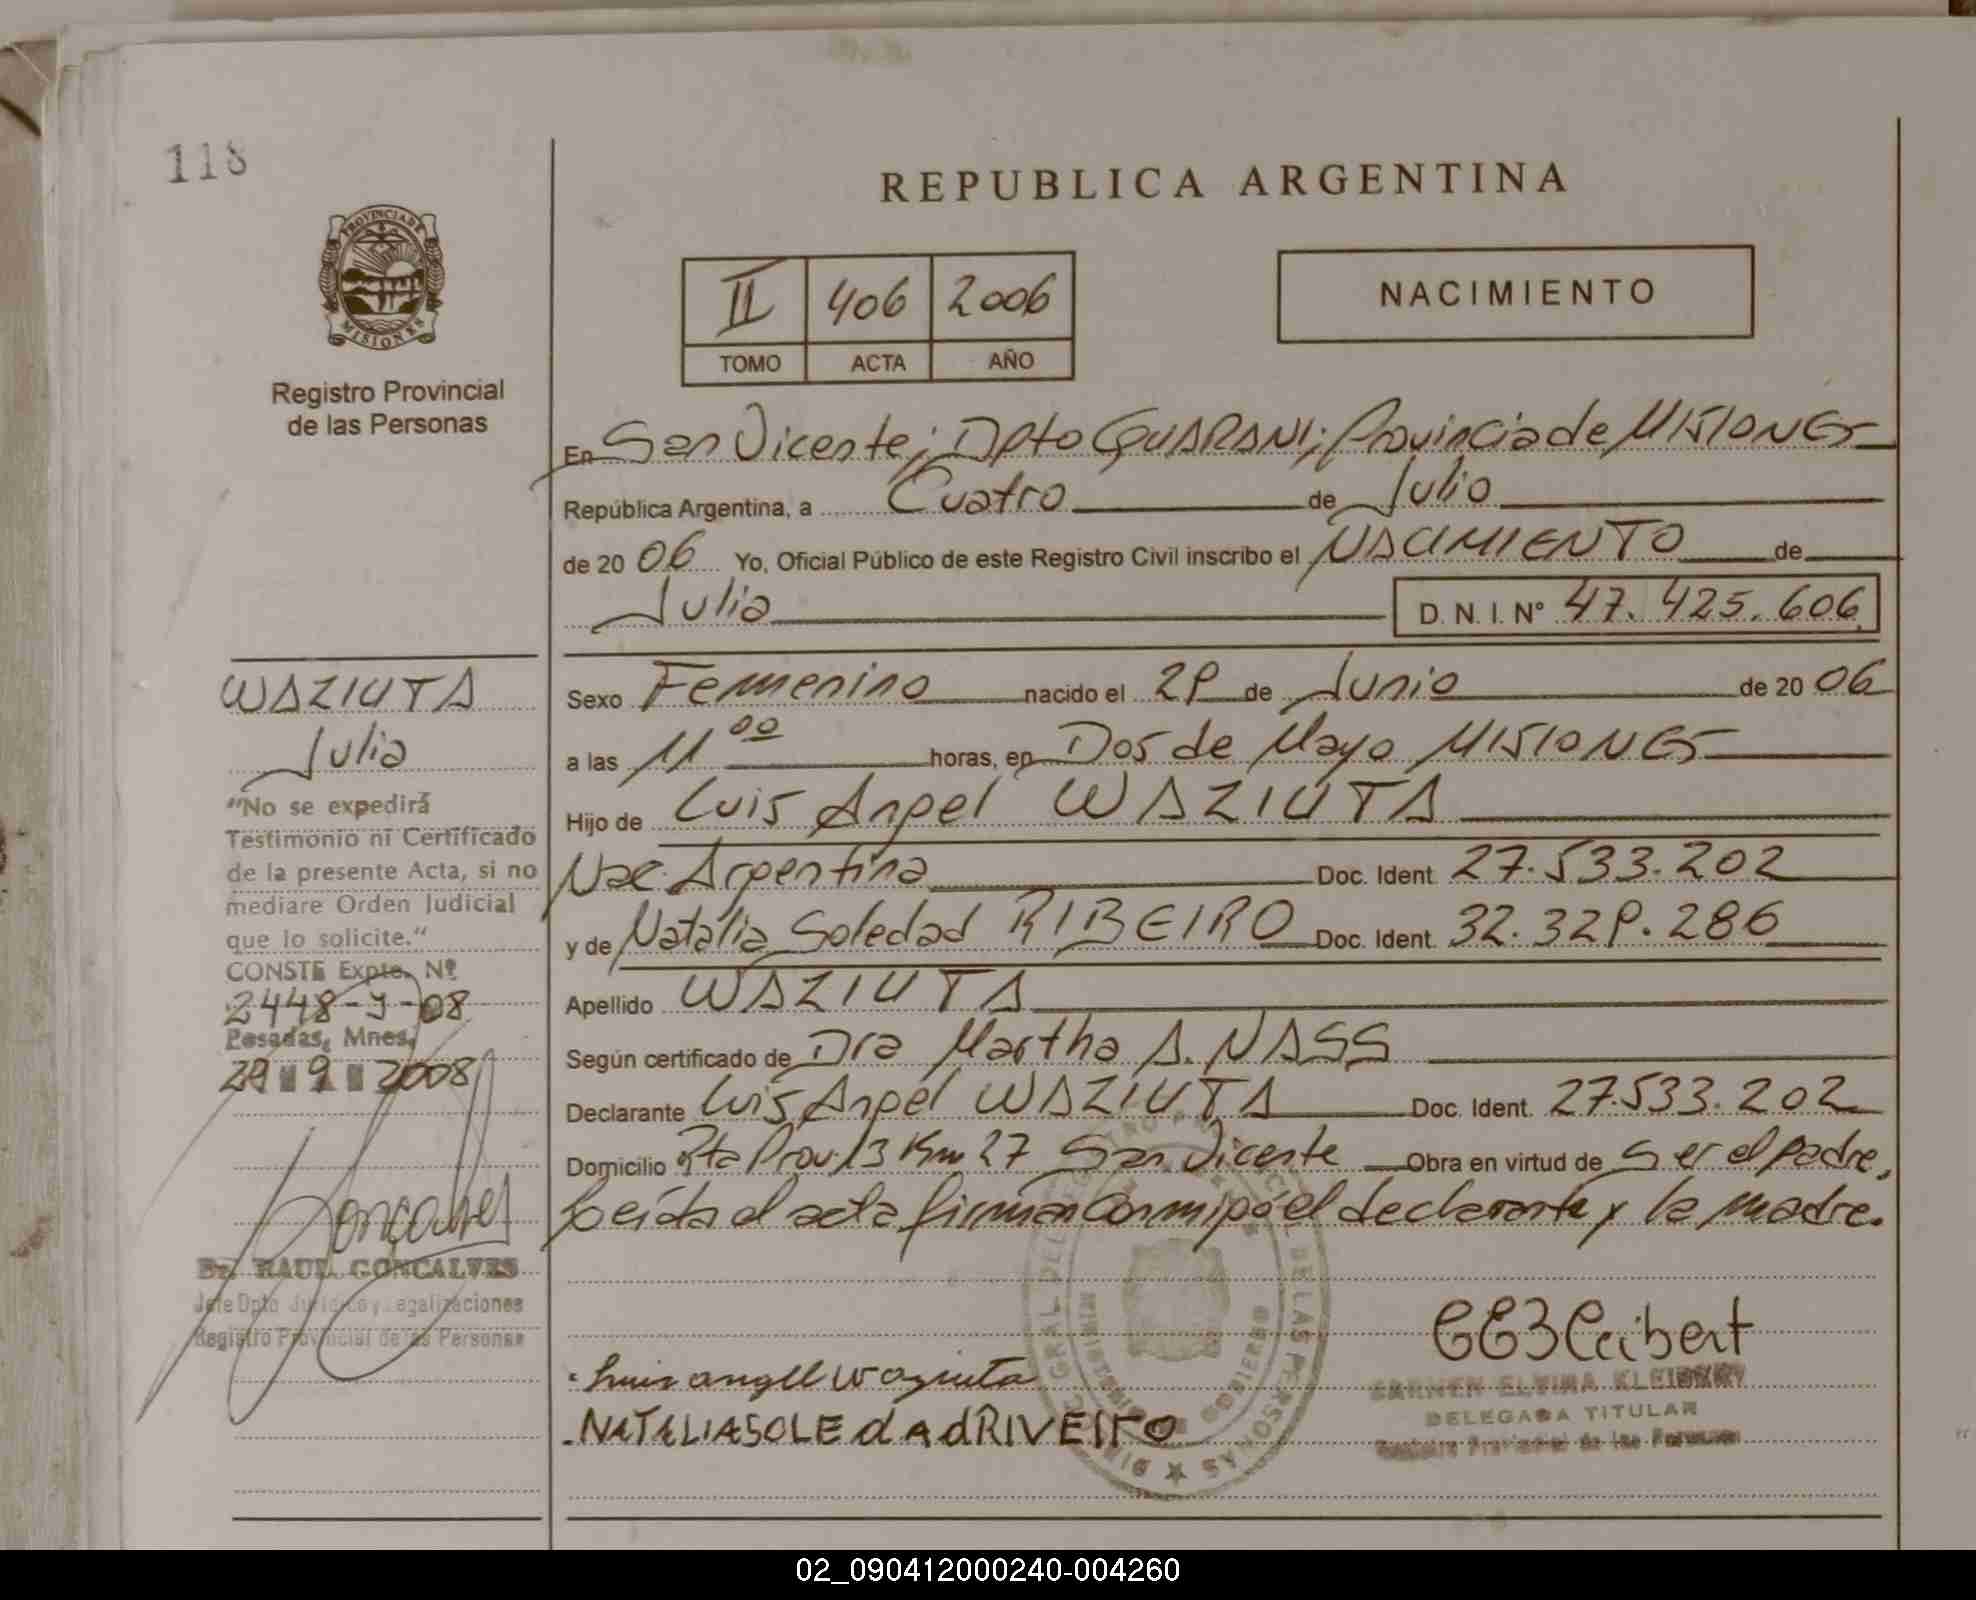 118
REPUBLICA ARGENTINA
PROVINCIA DE
MISIONES
Registro Provincial
de las Personas
II 406 2006
TOMO ACTA AÑO
NACIMIENTO
En San Vicente; Dpto GUARANI; Provincia de MISIONES
República Argentina, a Cuatro de Julio
de 2006 Yo, Oficial Público de este Registro Civil inscribo el NACIMIENTO de
Julia D. N. I. N° 47.425.606
Sexo Femenino nacido el 29 de Junio de 2006
a las 11 00 horas, en Dos de Mayo MISIONES
Hijo de Luis Angel WAZIUTA
Nac. Argentina Doc. Ident. 27.533.202
y de Natalia Soledad RIBEIRO Doc. Ident. 32.329.286
Apellido WAZIUTA
Según certificado de Dra Martha A. NASS
Declarante Luis Angel WAZIUTA Doc. Ident. 27.533.202
Domicilio Rta Prov. 13 Km 27 San Vicente Obra en virtud de Ser el padre,
Leída el acta firman conmigo el declarante y la madre.
WAZIUTA
Julia
"No se expedirá
Testimonio ni Certificado
de la presente Acta, si no
mediare Orden Judicial
que lo solicite."
CONSTE Expte. Nº
2448-9-08
Posadas, Mnes,
29 9 2008
Goncalves
RAUL GONCALVES
Jefe Dpto Jurídico y Legalizaciones
Registro Provincial de las Personas
Luis angel waziuta
NATALIA SOLEdAdRIVEIrO
CARMEN ELVIRA
DELEGADA TITULAR
Registro Provincial de las Personas
02_090412000240-004260